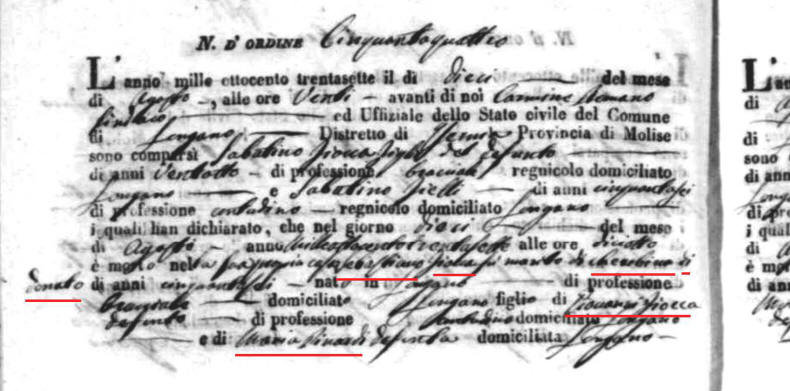 N. D' ORDINE Cinquantaquattro
L' anno mille ottocento trentasette il di dieci del mese
di Agosto, alle ore Venti avanti di noi Carmine Romano
Sindaco ed Uffiziale dello Stato civile del Comune
di Longano Distretto di Isernia Provincia di Molise
sono comparsi Sabatino Piocca figlio del defunto
di anni Ventotto di professione bracciale regnicolo domiciliato
Longano e Sabatino di anni cinquantasei
di professione contadino regnicolo domiciliato Longano
i quali han dichiarato, che nel giorno dieci del mese
di Agosto anno milleottocentotrentasette alle ore diciotto
è morto nella sua propria casa Sebastiano Piocca marito di Cherubina di
donato di anni cinquantasei nato in Longano di professione
bracciale domiciliato Longano figlio di Giovanni Piocca
defunto di professione contadino domiciliato Longano
e di Maria defunta domiciliata Longano
L'
di
di
sono
di ann
di pro
i qual
di
è mor
di ann